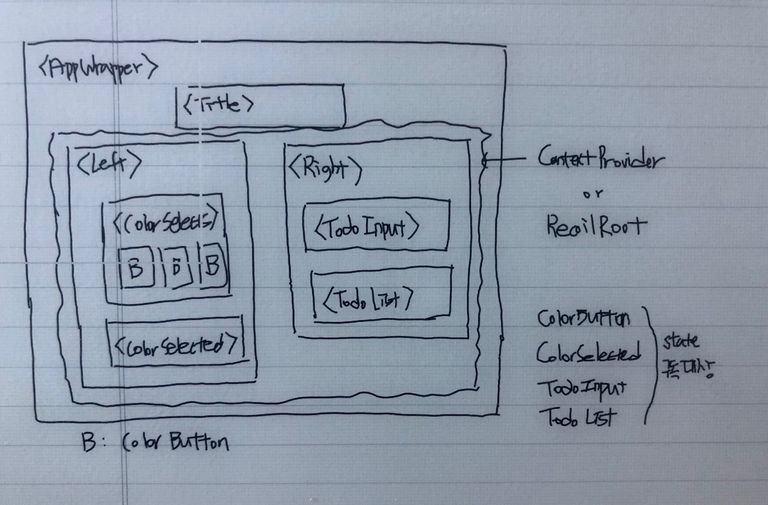 <AppWrapper>
<Title>
<Left>
<ColorSelects>
B B B
<ColorSelected>
<Right>
<TodoInput>
<TodoList>
ContextProvider
or
RecoilRoot
ColorButton
ColorSelected
TodoInput
TodoList
state
대상
B: ColorButton